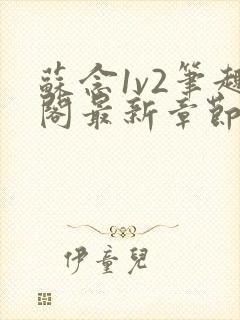 蘇念1v2筆趣
閣最新章節
伊童兒